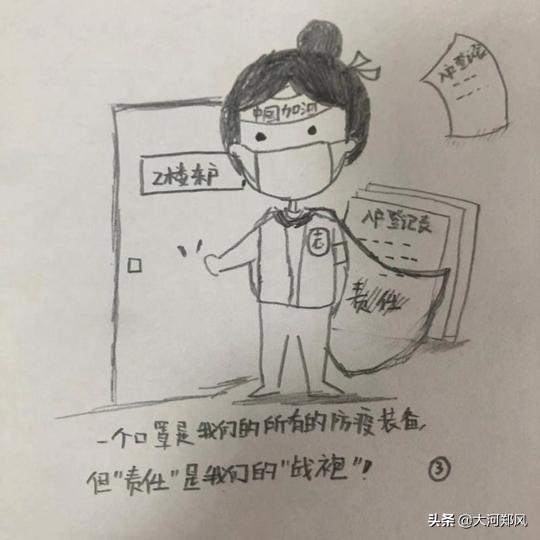 中国加油
入户登记表
2楼东户
入户登记表
志
责任
一个口罩是我们的所有的防疫装备，
但"责任"是我们的"战袍"！
③
头条 @大河郑风